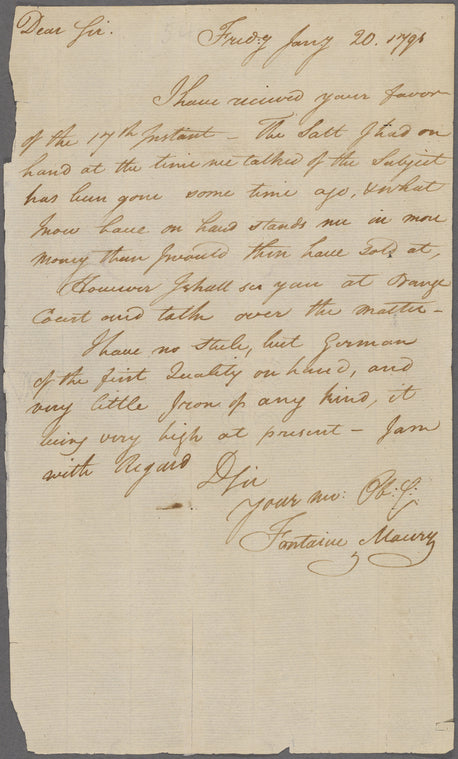 Dear Sir.
Fredg Jany 20. 1791
I have recieved your favor
of the 17th Instant – The Salt I had on
hand at the time we talked of the Subject
has been gone some time ago, & what
I now have on hand stands me in more
money than I would then have Sold at,
However I shall see you at Orange
Court and talk over the matter –
I have no stele, but German
of the first Quality on hand, and
very little Iron of any kind, it
being very high at present – I am
with Regard
D Sir
Your mo: Ob: S:
Fontaine Maury